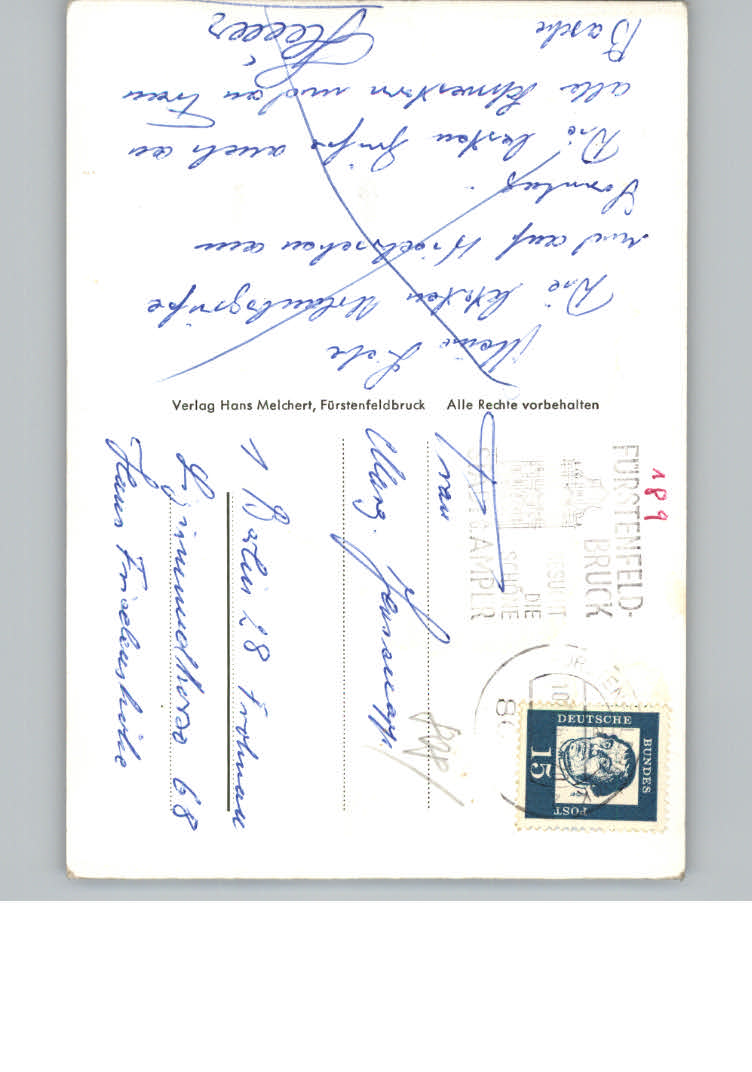 Meine Liebe
Die letzten Urlaubsgrüße
und auf Wiedersehen am
Sonntag.
Die besten Grüße auch an
alle Schwestern und an Frau
Basche
Verlag Hans Melchert, Fürstenfeldbruck Alle Rechte vorbehalten
189
FÜRSTENFELD-
BRUCK
BESUCHT
DIE
SCHÖNE
DEUTSCHE
BUNDES
POST
15
Frau
Marg.
1 Berlin 28 Frohnau
68
Haus Friedenshöhe